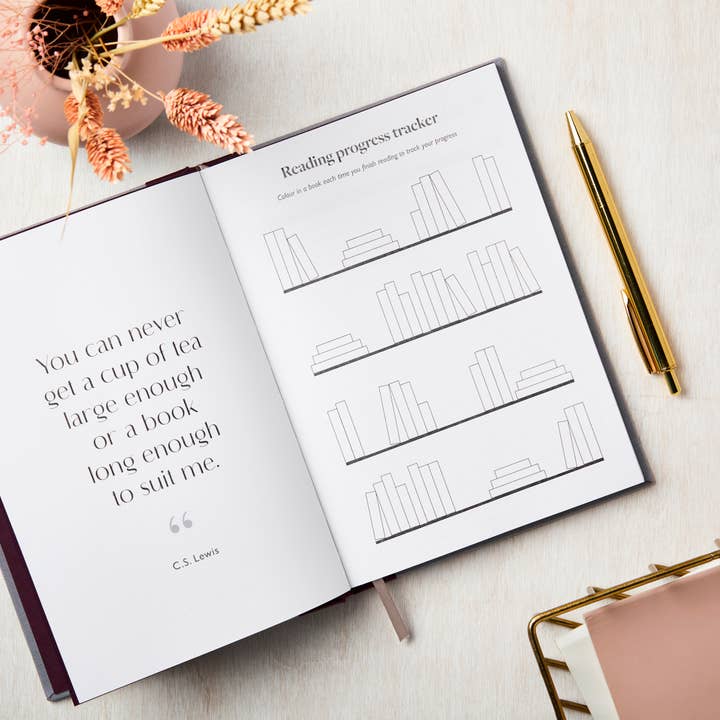 You can never
get a cup of tea
large enough
or a book
long enough
to suit me.
“
C.S. Lewis
Reading progress tracker
Colour in a book each time you finish reading to track your progress